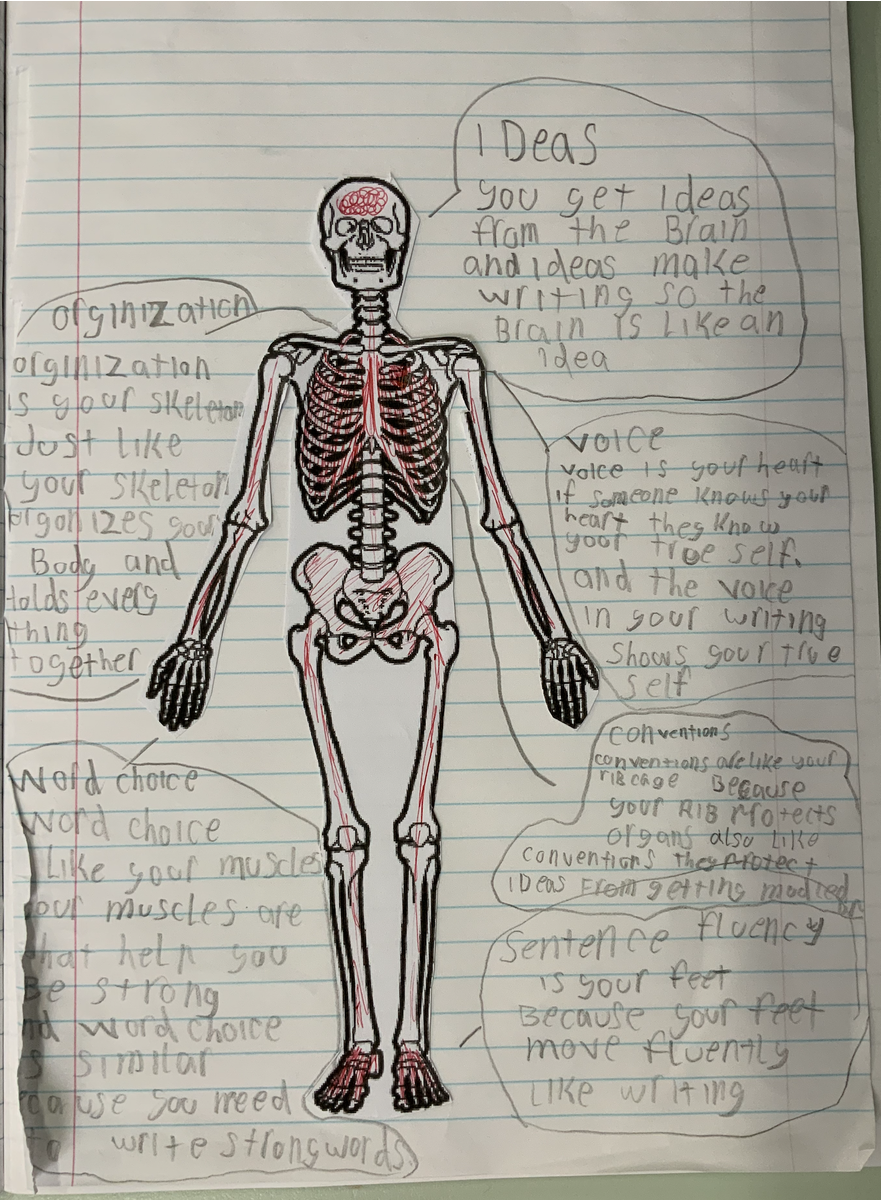 IDeas
you get Ideas
from the Brain
and ideas make
writing so the
Brain is Like an
idea
orginization
orginization
is your skeleton
Just like
your skeleton
orgonizes your
Body and
Holds every
thing
together
voice
voice is your heart
if someone knows your
heart they know
your true self.
and the voice
in your writing
shows your true
self
Word choice
Word choice
Like your muscles
your muscles are
that help you
Be strong
word choice
similar
you need
write strong words
conventions
conventions are like your
rib cage Because
your RIB Protects
organs also Like
conventions they Protect
IDeas From getting
Sentence fluency
is your feet
Because your feet
move fluently
Like writing